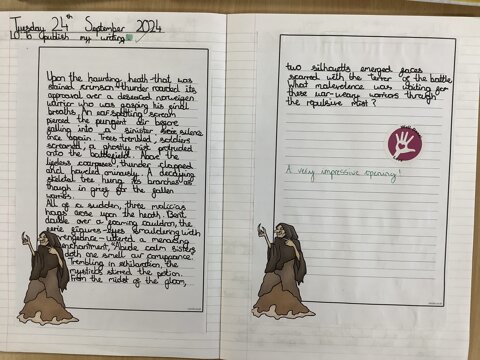 Tuesday 24th September 2024
LI to publish my writing
Upon the haunting heath that was
stained crimson thunder roared its
approval over a deserted norweigen
warrior who was gasping his final
breaths. An ear splitting scream
pierced the pungent air before
falling into a sinister, eerie silence
once again. Trees trembled, soldiers
screamed, a ghostly mist protruded
onto the battlefield. Above the
lifeless coarpses thunder clapped
and howled ominously. A decaying
skeletal tree hung its branches as
though in grief for the fallen
warriors.
All of a sudden, three malicias
hags arose upon the heath. Bent
double over a foaming cauldron, the
eerie figures-eyes smouldering with
vengeance-uttered a menacing
enchantment, sisters
doth one smell our
Trembling in exhilaration, the
mysticds stirred the potion.
From the midst of the gloom,
two silhouetts emerged faces
scarred with the terror of the battle.
What malevolence was waiting for
these war-weary warriors through
the repulsive mist?
A very impressive opening!